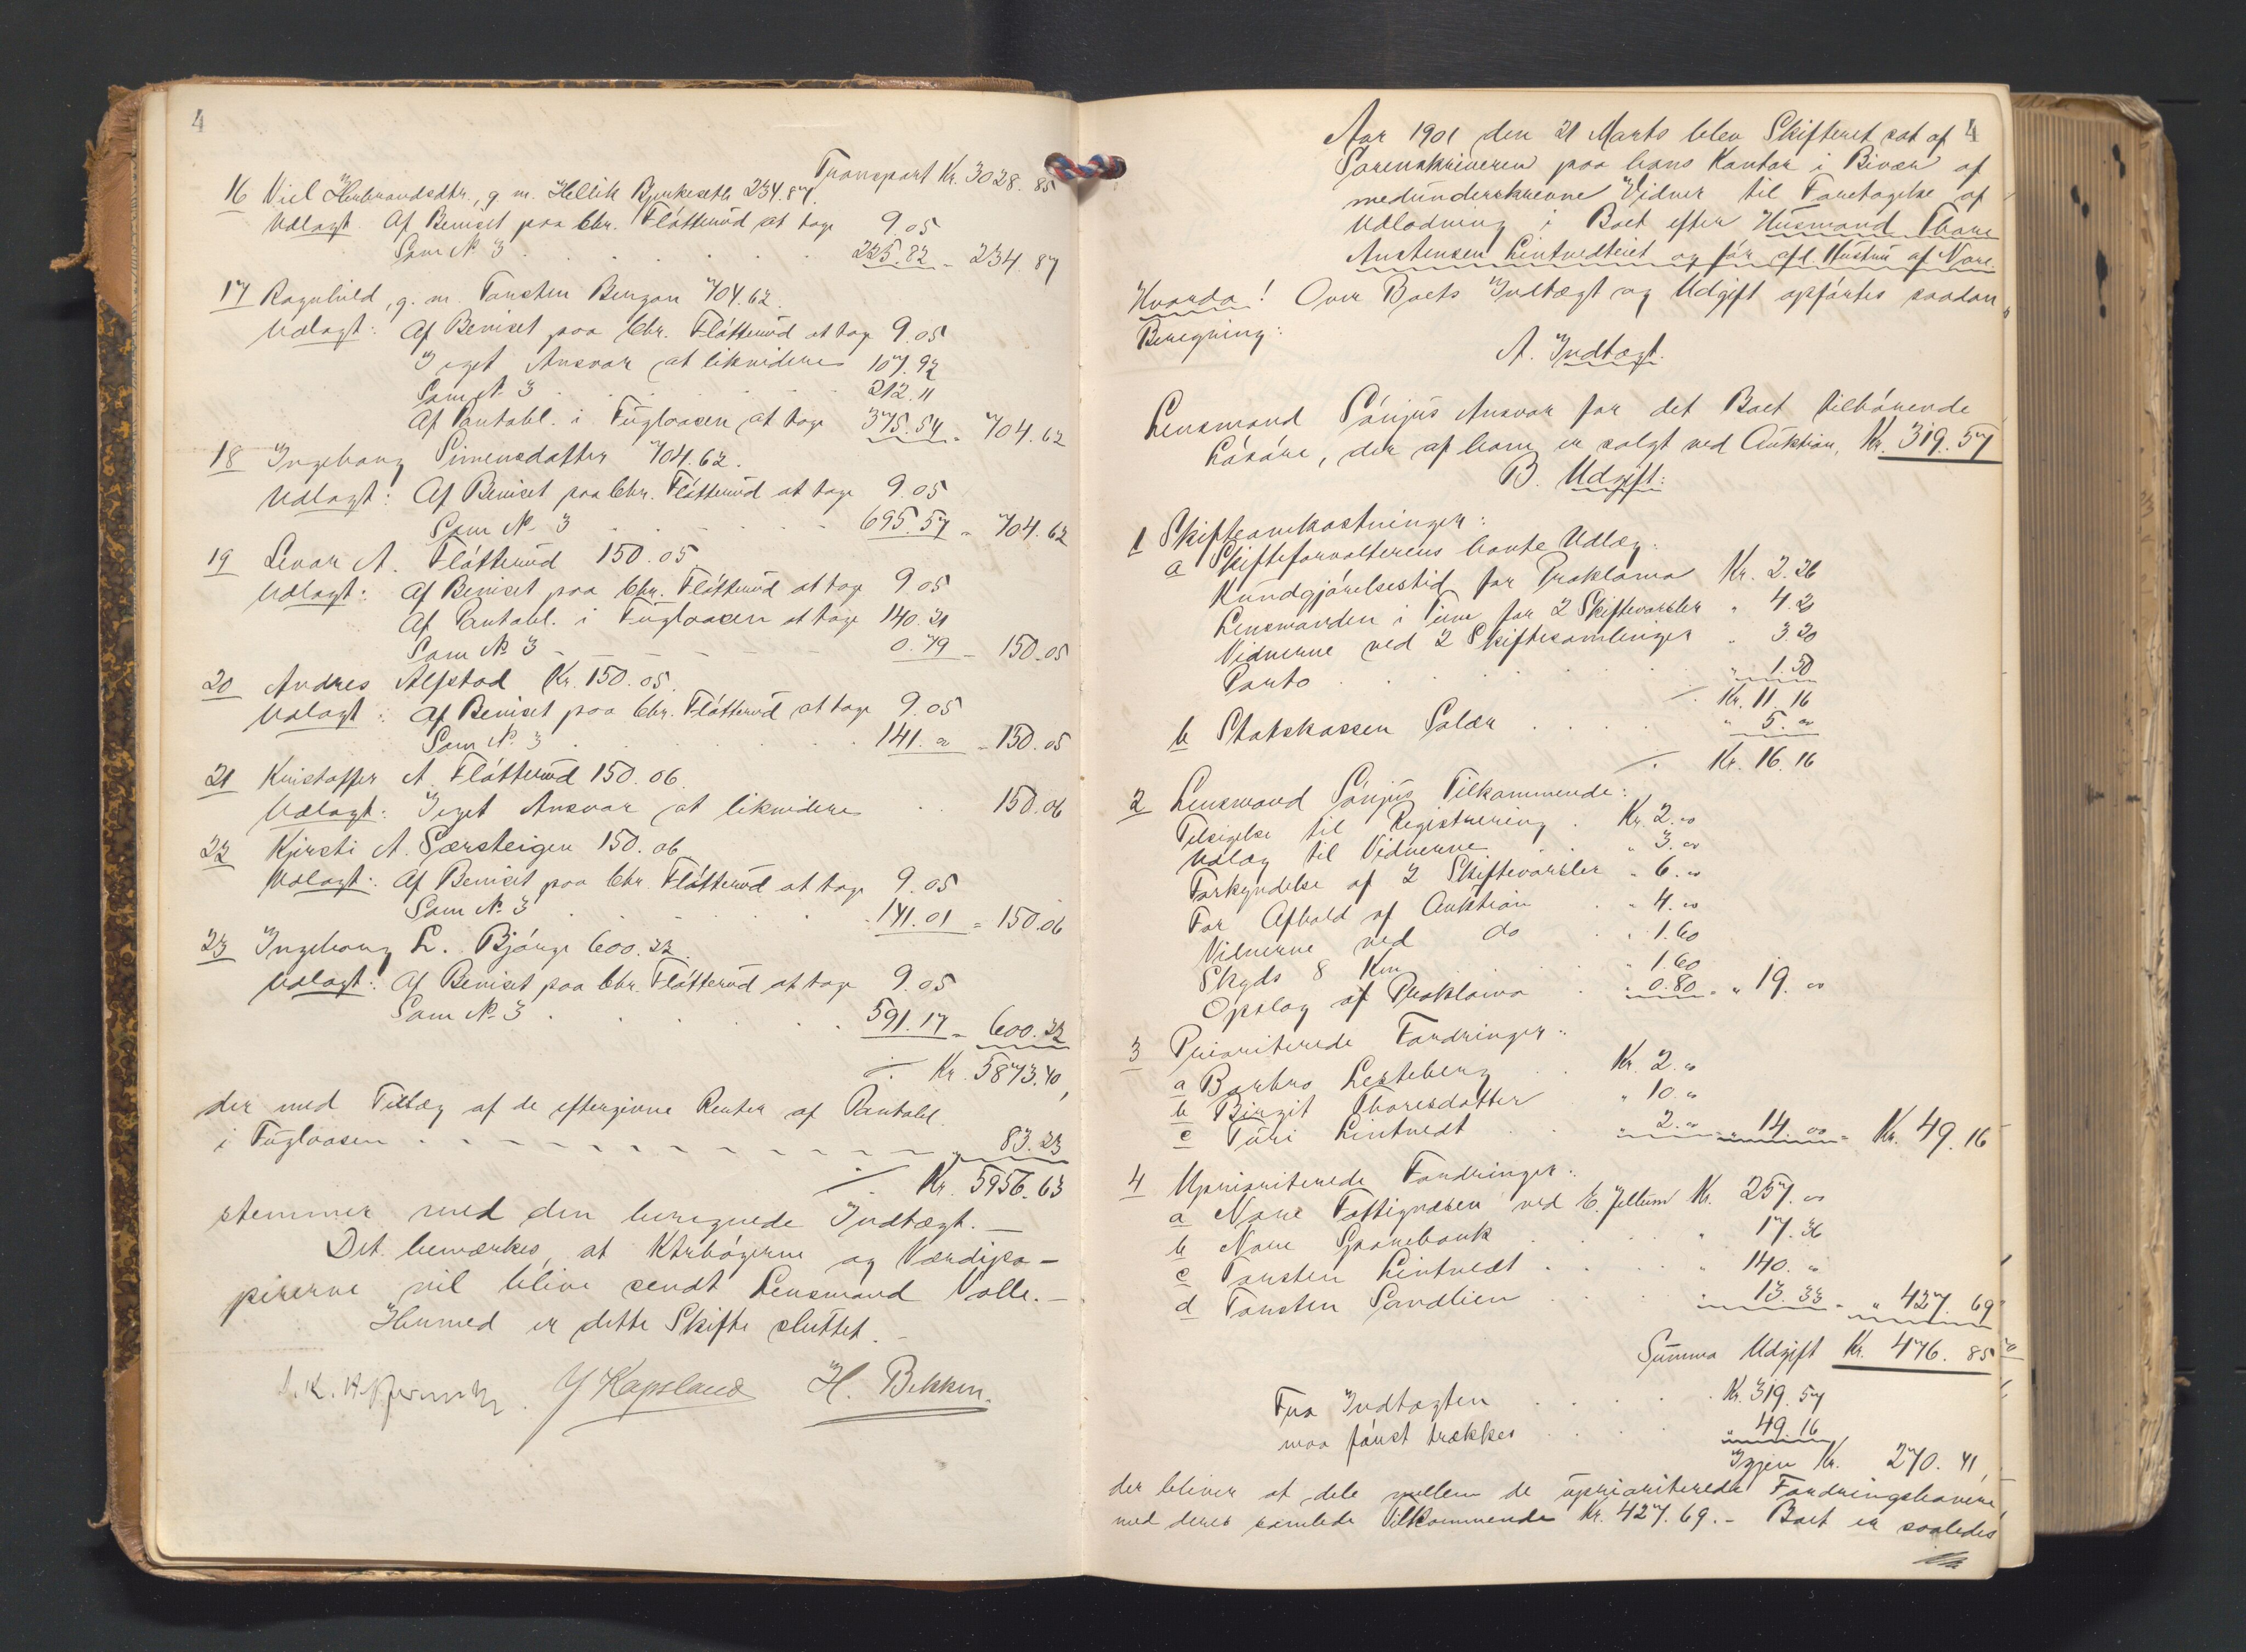 4
Transport Kr. 3028.85
16 Viel Herbrandsdtr., g. m. Hellik Bjerkeseth 234.87.
Udlagt. Af Beviset paa Chr. Fløtterud at tage 9.05
Som No 3 . . . . . 225.82 = 234.87
17 Ragnhild, g. m. Torsten Bergan 704.62.
Udlagt: Af Beviset paa Chr. Fløtterud at tage 9.05
I eget Ansvar at likvidere 107.92
Som No 3 . . . . 212.11
Af Pantobl. i Fugloasen at tage 375.54 = 704.62
18 Ingeborg Simensdatter 704.62.
Udlagt: Af Beviset paa Chr. Fløtterud at tage 9.05
Som No 3 . . . . . 695.57 = 704.62
19 Levor A. Fløtterud 150.05
Udlagt: Af Beviset paa Chr. Fløtterud at tage 9.05
Af Pantobl. i Fugloasen at tage 140.21
Som No 3 – – – – – 0.79 = 150.05
20 Andres Alfstad Kr. 150.05.
Udlagt: Af Beviset paa Chr. Fløtterud at tage 9.05
Som No. 3 . . . . . 141.00 = 150.05
21 Kristoffer A. Fløtterud 150.06.
Udlagt: I eget Ansvar at likvidere . . 150.06
22 Kjersti A. Særsteigen 150.06
Udlagt: Af Beviset paa Chr. Fløtterud at tage 9.05
Som No. 3 . . . . . 141.01 = 150.06
23 Ingeborg L. Bjørge 600.22.
Udlagt: Af Beviset paa Chr. Fløtterud at tage 9.05
Som No. 3 . . . . . 591.17 = 600.22
Kr. 5873.40,
der med Tillæg af de eftergivne Renter af Pantobl.
i Fugloasen – – – – – – – – 83.23
Kr. 5956.63
stemmer med den beregnede Indtægt. –
Det bemærkes, at Ktrbøgerne og Værdipa-
pirerne vil blive sendt Lensmand Kolle. –
Hermed er dette Skifte sluttet. –
Y Kapsland H. Bekken.
4
Aar 1901 den 21 Marts blev Skifteret sat af
Sorenskriveren paa hans Kontor i Bivær af
medunderskrevne Vidner til Foretagelse af
Udlodning i Boet efter Husmand Thore
Anstensen Lintvedteiet og før afd. Hustru af Nore.
Hvorda! Over Boets Indtægt og Udgift opførtes saadan
Beregning:
A. Indtægt.
Lensmand Sønjus Ansvar for det Boet tilhørende
Løsøre, der af ham er solgt ved Auktion, Kr. 319.57
B. Udgift:
1 Skifteomkostninger:
a Skifteforvalterens havte Udlæg.
Kundgjørelsestid for Proklama Kr. 2.26
Lensmanden i Tinn for 2 Skiftevarsler " 4.20
Vidnerne ved 2 Skiftesamlinger " 3.20
Porto . . . . . . " 1.50
Kr. 11.16
b Statskassen Salær . . . . " 5.00
Kr. 16.16
2 Lensmand Sønjus Tilkommende:
Tilsigelse til Registrering . Kr. 2.00
Udlæg til Vidnerne . . " 3.00
Forkyndelse af 2 Skiftevarsler " 6.00
For Afhold af Auktion . " 4.00
Vidnerne ved do . " 1.60
Skyds 8 Km . . . " 1.60
Opslag af Proklama . " 0.80 = " 19.00
3 Prioriterede Fordringer:
a Barbro Lesteberg . . Kr. 2.00
b Birgit Thoresdatter " 10.00
c Turi Lintvedt . . " 2.00 = " 14.00 = Kr. 49.16
4 Uprioriterede Fordringer:
a Nore Fattigvæsen ved E. Jellum Kr. 257.00
b Nore Sparebank . . . . " 17.36
c Torsten Lintvedt . . . . " 140.00
d Torsten Sandlien . . . . " 13.33 = " 427.69
Summa Udgift Kr. 476.85
Fra Indtægten . . . . Kr. 319.57
maa først trækkes . . . " 49.16
Igjen Kr. 270.41,
der bliver at dele mellem de uprioriterede Fordringshavere,
med deres samlede Tilkommende Kr. 427.69. – Boet er saaledes